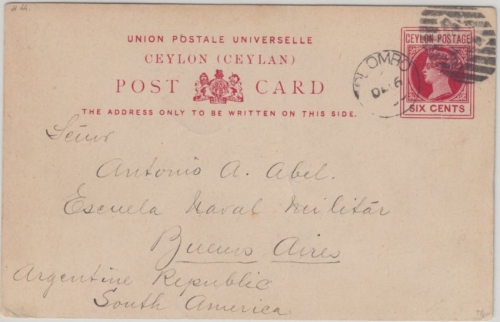 UNION POSTALE UNIVERSELLE
CEYLON (CEYLAN)
POST CARD
THE ADDRESS ONLY TO BE WRITTEN ON THIS SIDE.
CEYLON POSTAGE
SIX CENTS
OLOMBO
DE 6
Señor
Antonio A. Abel.
Escuela Naval Militár
Buenos Aires
Argentine Republic
South America